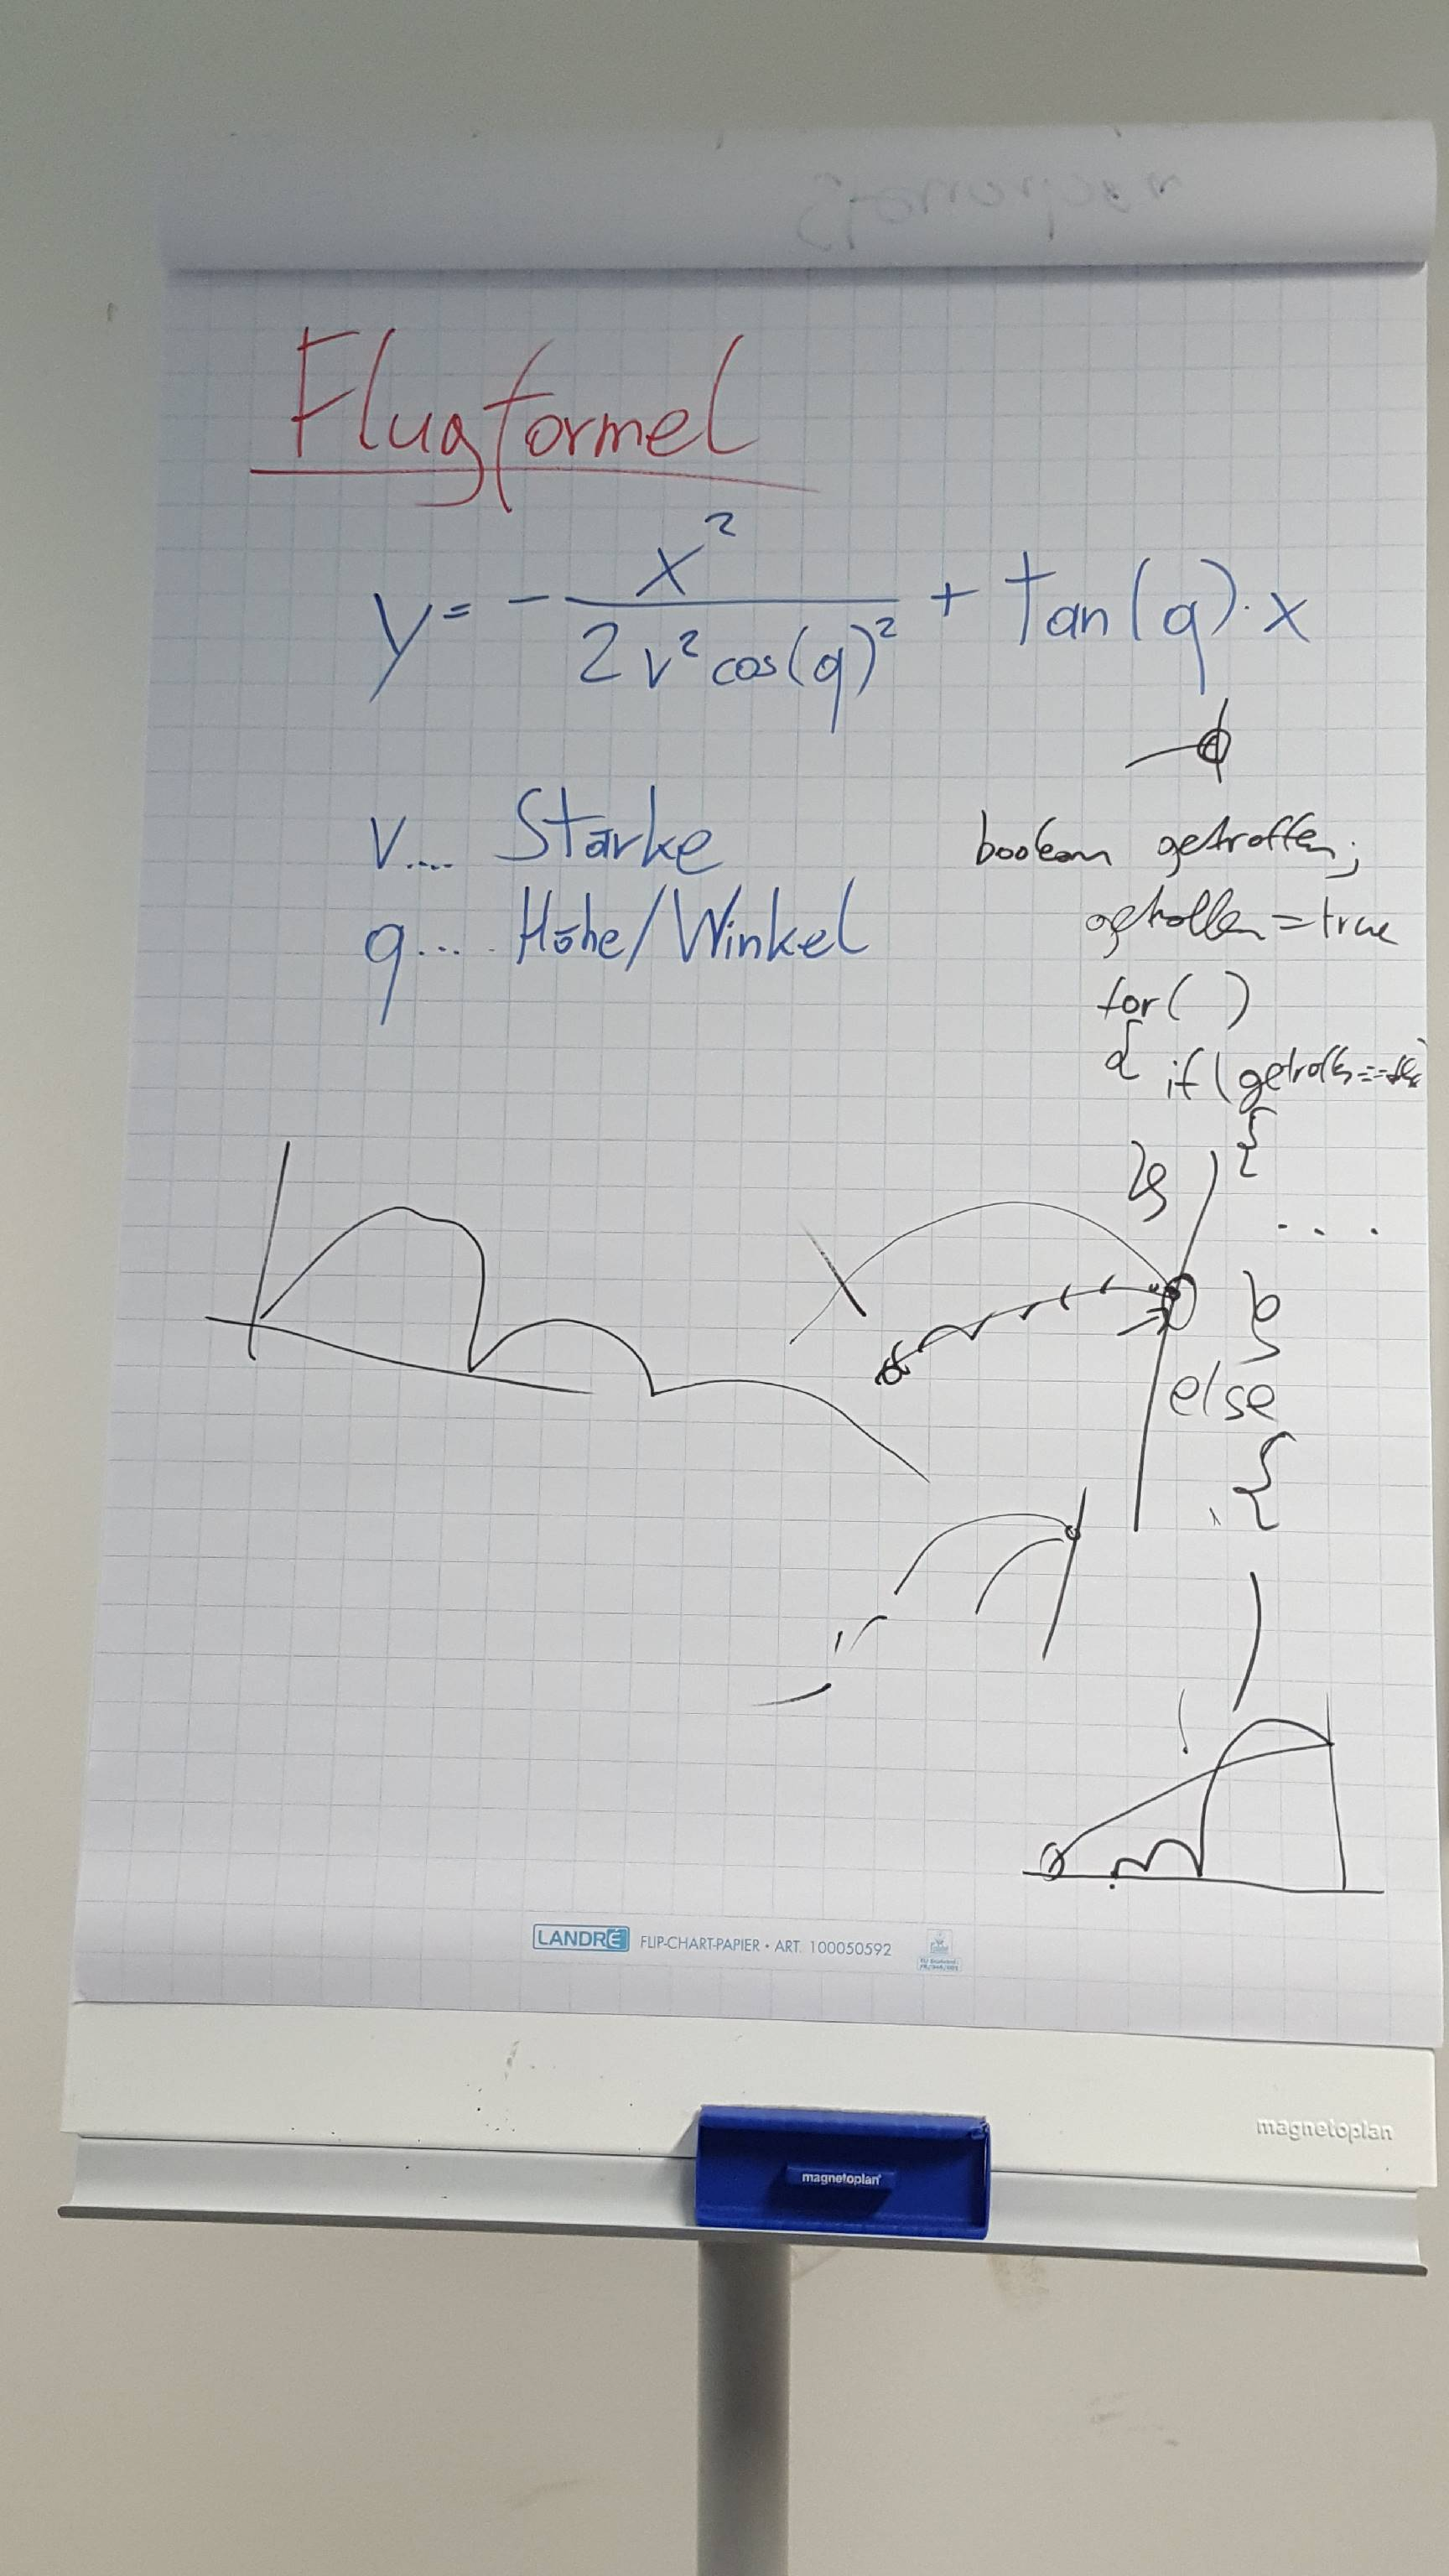 Flugformel
y = - x² / 2 v² cos(q)² + tan(q) · x
v.... Stärke
q.... Höhe/Winkel
boolean getroffen;
getroffen = true
for( )
{ if (getroffen ==
{
. . .
}
else
{
LANDRÉ FLIP-CHART-PAPIER • ART. 100050592
magnetoplan
magnetoplan